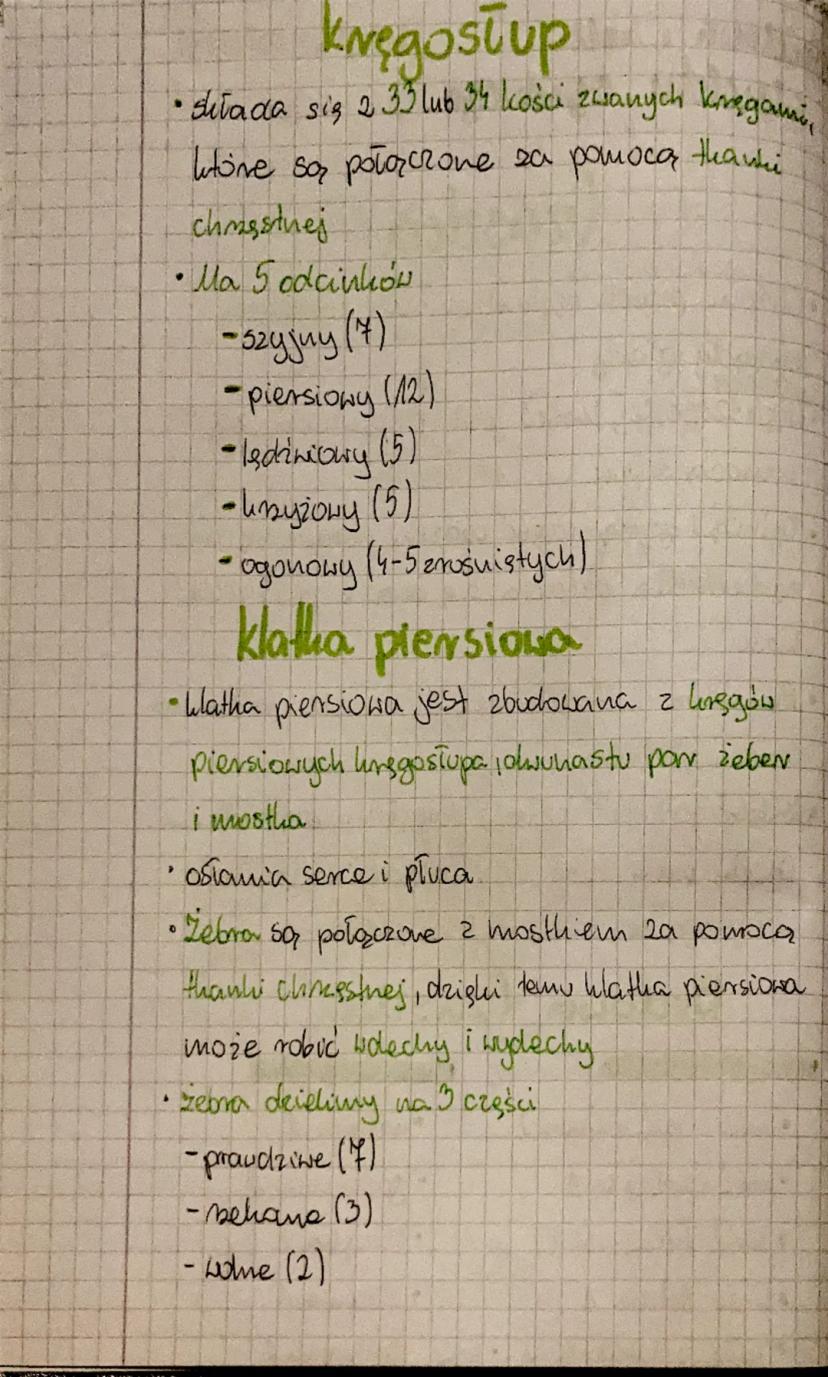 kręgosłup
• składa się z 33 lub 34 kości zwanych kręgami,
które są połączone za pomocą tkanki
chrzęstnej
• Ma 5 odcinków
- szyjny (7)
- piersiowy (12)
- lędźwiowy (5)
- krzyżowy (5)
- ogonowy (4-5 zrośniętych)
klatka piersiowa
• klatka piersiowa jest zbudowana z kręgów
piersiowych kręgosłupa, dwunastu par żeber
i mostka
• osłania serce i płuca
• Żebra są połączone z mostkiem za pomocą
tkanki chrzęstnej, dzięki temu klatka piersiowa
może robić wdechy i wydechy
• żebra dzielimy na 3 części
- prawdziwe (7)
- rzekome (3)
- wolne (2)